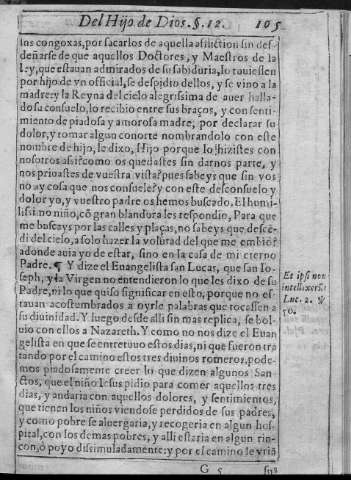 Del Hijo de Dios. §. 12. 105
sus congoxas, por sacarlos de aquella aflictiõ sin des
deñarse de que aquellos Doctores, y Maestros de la
ley, que estauan admirados de su sabiduria, lo tuuiessen
por hijo de vn official, se despidio dellos, y se vino a la
madre: y la Reyna del cielo alegrissima de auer halla-
do su consuelo, lo recibio entre sus braços, y con senti-
miento de piadosa y amorosa madre, por declarar su
dolor, y tomar algun conorte nombrandolo con este
nombre de hijo, le dixo, Hijo porque lo hizistes con
nosotros assi? como os quedastes sin darnos parte, y
nos priuastes de vuestra vista? pues sabeys que sin vos
no ay cosa que nos consuele? y con este desconsuelo y
dolor yo, y vuestro padre os hemos buscado. El humi-
lissimo niño, cõ gran blandura les respondio, Para que
me buscays por las calles y plaças, no sabeys que descẽ-
di del cielo, a solo hazer la volũtad del que me embio?
adonde auia yo de estar, sino en la casa de mi eterno
Padre. ¶ Y dize el Euangelista san Lucas, que san Io-
seph, y la Virgen no entendieron lo que les dixo de su
Padre, ni lo que quiso significar en esto, porque no es-
tauan acostumbrados a oyrle palabras que tocassen a
su diuinidad. Y luego desde alli sin mas replica, se bol-
uio con ellos a Nazareth. Y como no nos dize el Euan
gelista en que se entretuuo estos dias, ni que fueron tra
tando por el camino estos tres diuinos romeros, pode-
mos piadosamente creer lo que dizen algunos San-
ctos, que el niño Iesus pidio para comer aquellos tres
dias, y andaria con aquellos dolores, y sentimientos,
que tienen los niños viendose perdidos de sus padres,
y como pobre se aluergaria, y recogeria en algun hos-
pital, con los demas pobres, y alli estaria en algun rin-
con, ó poyo dissimuladamente: y por el camino le vriã
G 5
Et ipsi non
intellexerũt
Luc. 2. §
50.